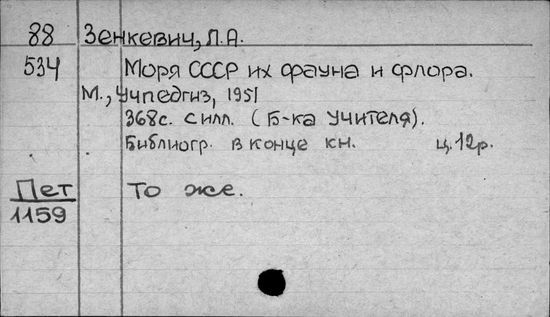 88 Зенкевич, Л.А.
534 Моря СССР их фауна и флора.
М., Учпедгиз, 1951
368с. с илл. (Б-ка учителя).
Библиогр. в конце кн. ц. 12р.
Пет То же.
1159